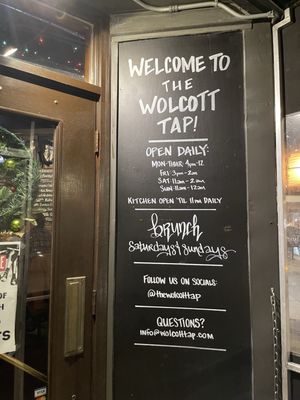 WELCOME TO
THE
WOLCOTT
TAP!
OPEN DAILY:
MON-THUR 4pm-12
FRI 3pm-2am
SAT 11am-2am
SUN 11am-12am
KITCHEN OPEN TIL 11pm DAILY
Brunch
Saturdays & Sundays
FOLLOW US ON SOCIALS:
@thewolcottap
QUESTIONS?
INFO@WOLCOTTTAP.COM